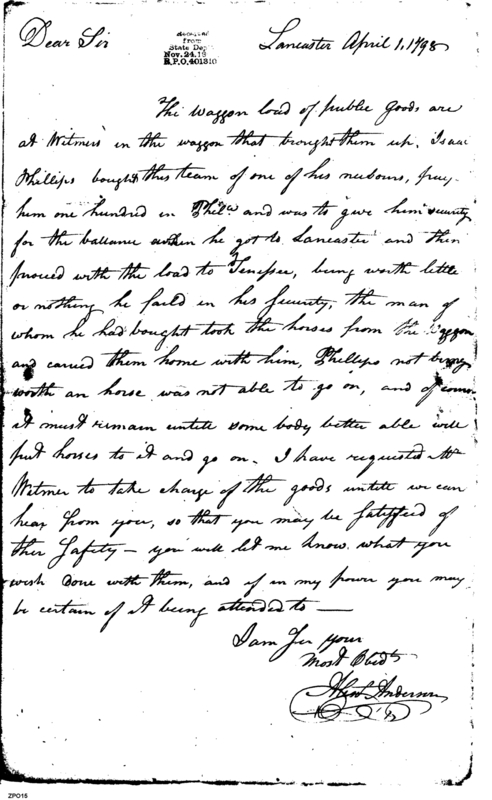 Dear Sir
received
from
State Dept
Nov. 24, 19
R.P.O, 401310
Lancaster April 1, 1798
The waggon load of public goods are
at Witmers in the waggon that brought them up, Isaac
Phillips bought this team of one of his neibours, pay
him one hundred in Phila and was to give him security
for the ballance when he got to Lancaster and then
proceed with the load to Tenessee, being worth little
or nothing he faild in his Security, the man of
whom he had bought took the horses from the waggon
and carried them home with him, Phillips not being
worth an horse was not able to go on, and of course
it must remain untill some body better able will
put horses to it and go on. I have requested Mr
Witmer to take charge of the goods untill we can
hear from you, so that you may be Satisfied of
their Safety — you will let me know what you
wish done with them, and if in my power you may
be certain of it being attended to —
I am Sir your
Most Obedt
Anderson
ZPO15